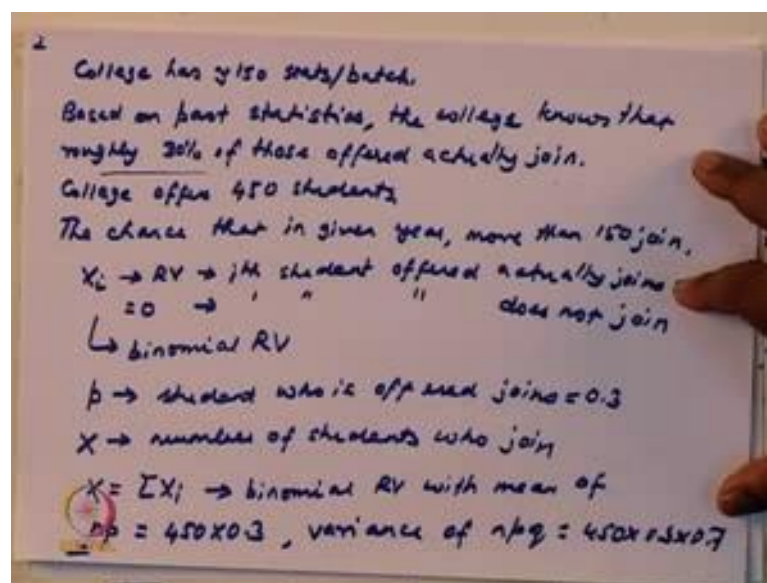 2
College has ≈150 seats/batch.
Based on past statistics, the college knows that
roughly 30% of those offered actually join.
College offers 450 students
The chance that in given year, more than 150 join.
Xi → RV → ith student offered actually joins
=0 → ' " " does not join
↳ binomial RV
p → student who is offered joins = 0.3
X → number of students who join
X = ΣXi → binomial RV with mean of
np = 450x0.3, variance of npq = 450x0.3x0.7